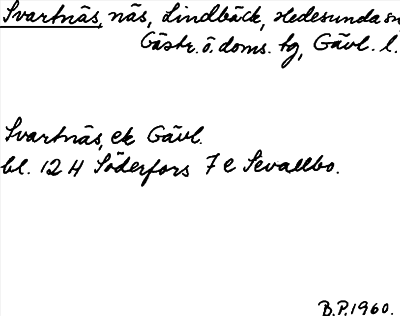 Svartnäs, näs, Lindbäck, Hedesunda sn,
Gästr. ö. doms. tg, Gävl. l.
Svartnäs, ek Gävl.
bl. 12 H Söderfors 7 e Sevallbo.
B.P. 1960.